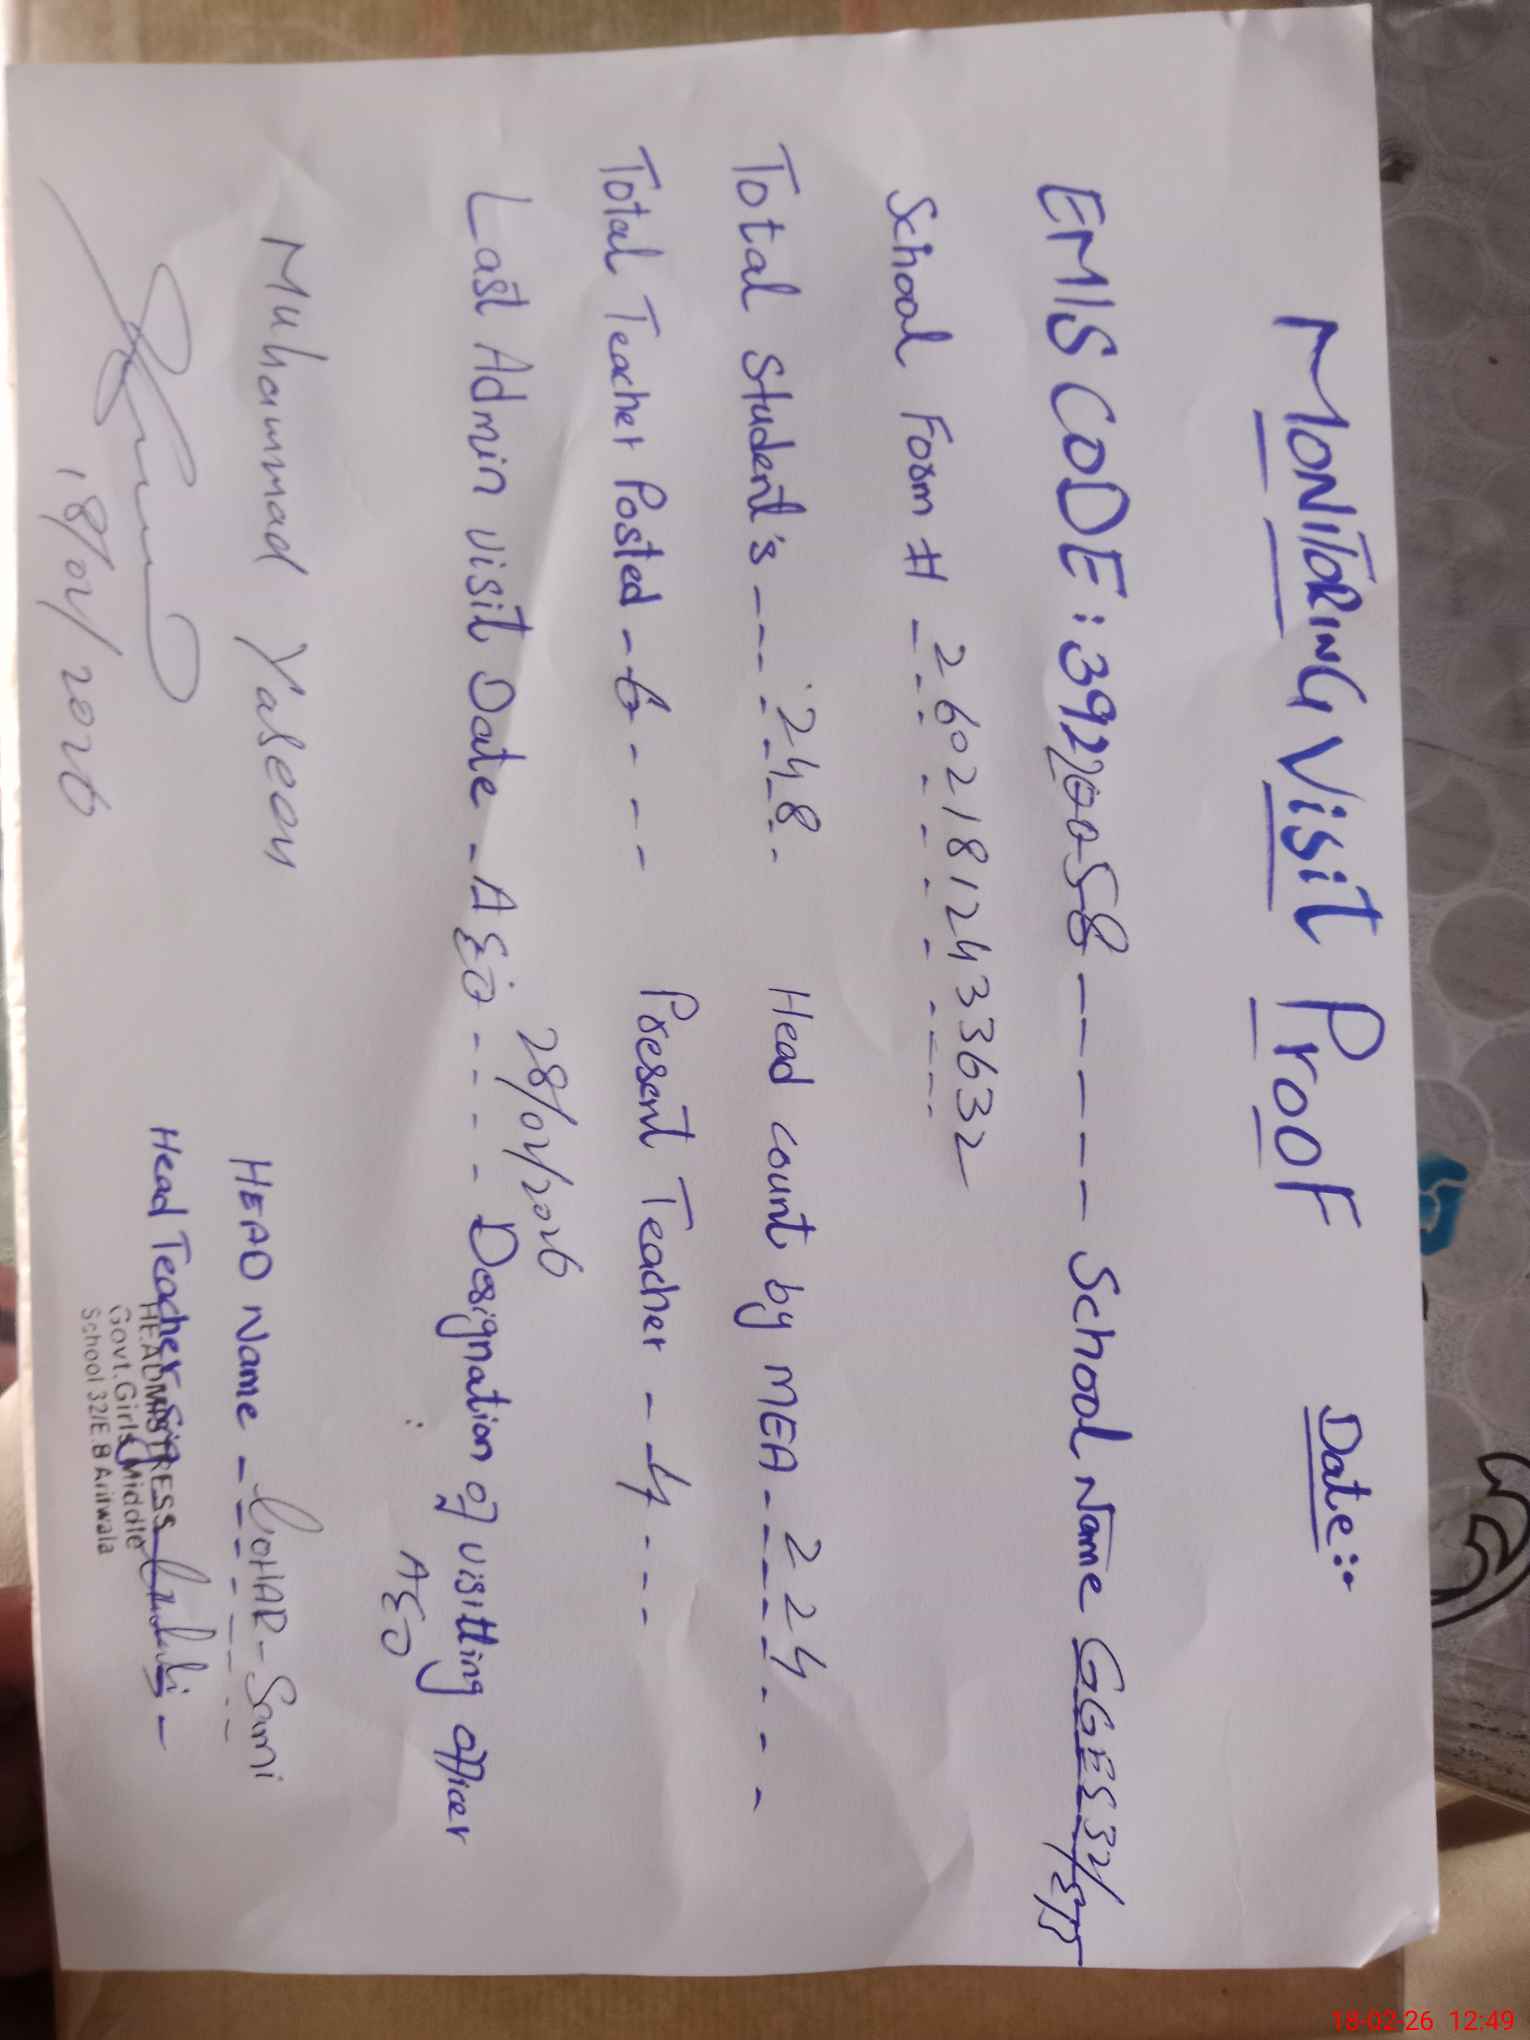 MONITORING Visit Proof Date:
EMIS CODE: 39220058 ----- School Name GGES 32/
School Form # - 260218124333632
Total Student's --- 248 Head count by MEA - 224
Total Teacher Posted - 6 - - - Present Teacher - 4 - - -
28/02/2026
Last Admin visit Date - AEO - - - - Designation of visitting officer
AEO
Muhammad Yaseen HEAD Name - GOHAR-Sami
18/02/2026
Head Teacher Sign
HEADMISTRESS
Govt. Girls Middle
School 32/E.B Arifwala
18-02-26 12:49